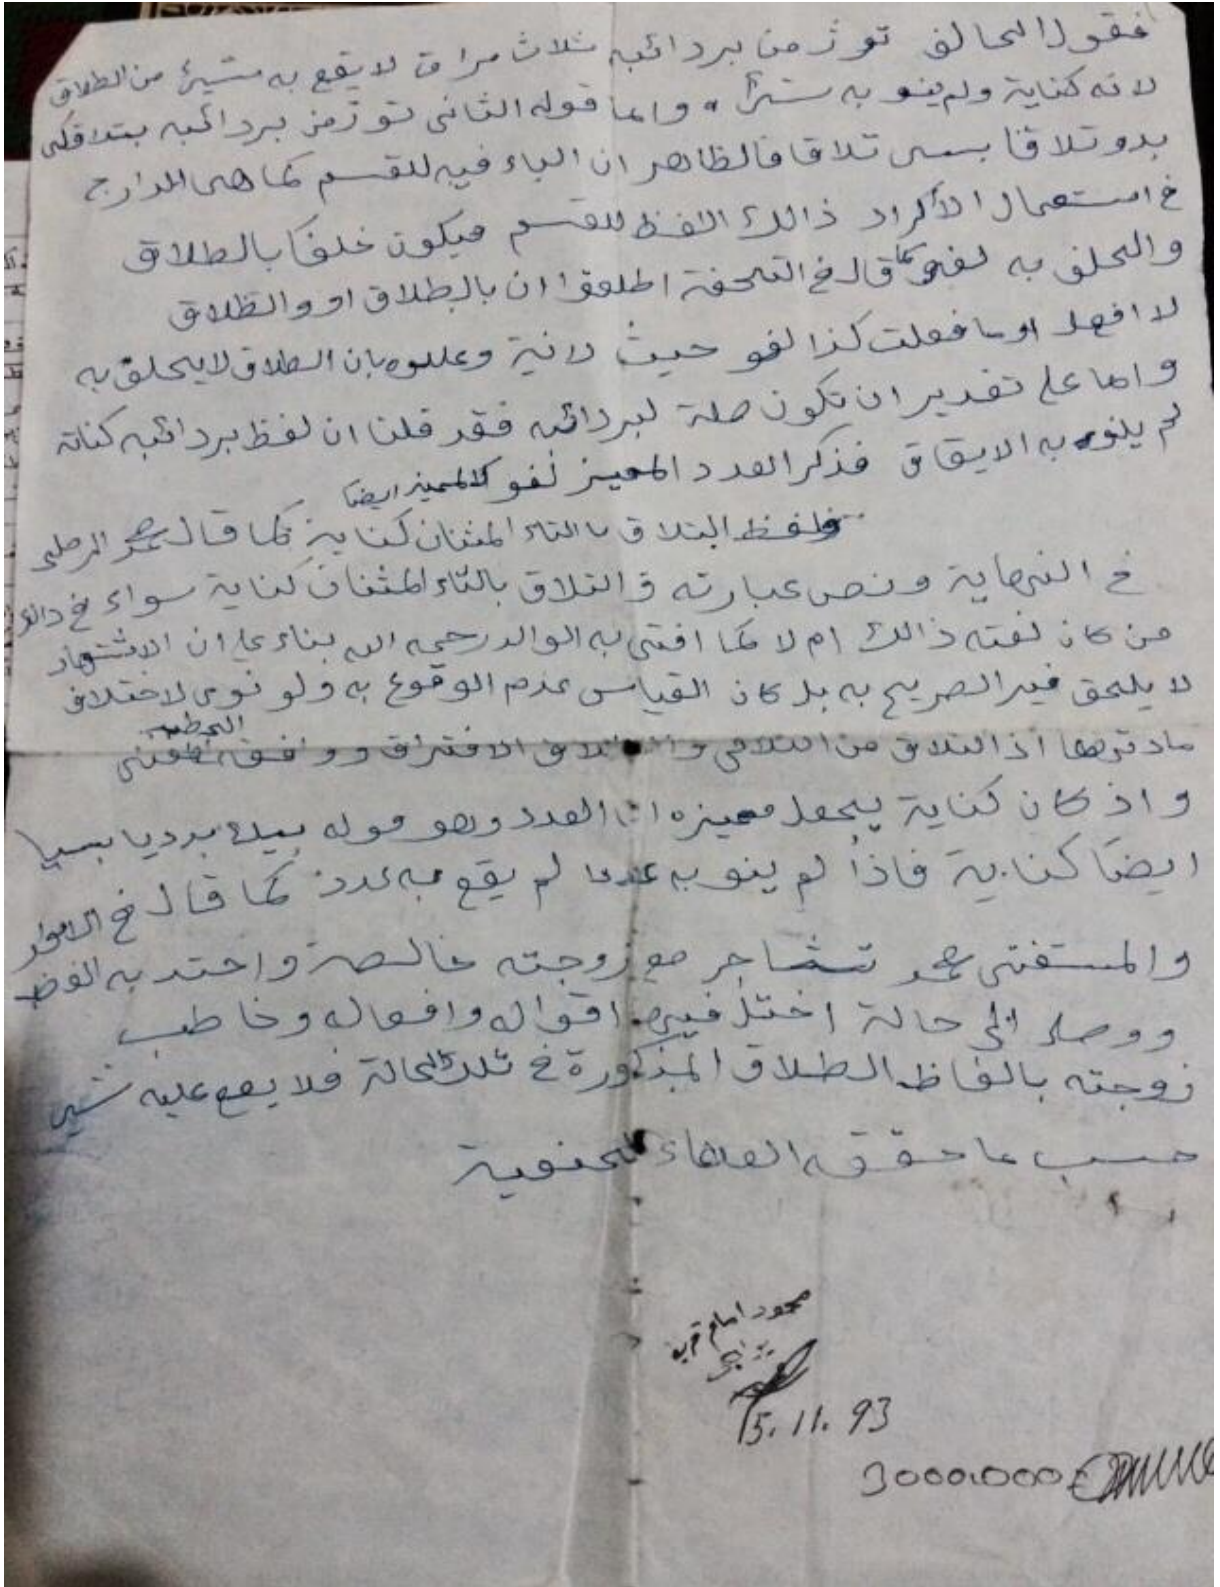 فقول الحالف توژمن بردائیه ثلاث مرات لا يقع به شيئ من الطلاق
لانه كناية ولم ينو به شيئا واما قوله الثانى توژمن بردائیه بتلاقكى
بدو تلاقا بسى تلاقا فالظاهر ان الباء فيه للقسم كما هى الدارج
فى استعمال الأكراد ذالك اللفظ للقسم فيكون حلفا بالطلاق
والحلف به لغو كما قال فى التحفة اطلقوا ان بالطلاق او والطلاق
لا افعل او ما فعلت كذا لغو حيث لا نية وعللوه بان الطلاق لا يحلف به
واما على تقدير ان تكون صلة لبردائیه فقد قلنا ان لفظ بردائیه كناية
لم ينوه به الايقاق فذكر العدد المميز لغو كالمميز ايضا
فلفظ التلاق بالتاء المثنات كناية كما قال محمد الرملى
فى النهاية ونص عبارته والتلاق بالتاء المثنات كناية سواء فى ذالك
من كان لغته ذالك ام لا كما افتى به الوالد رحمه الله بناء على ان الاشتهار
لا يلحق غير الصريح به بل كان القياس عدم الوقوع به ولو نوى لاختلاف
مادتهما اذ التلاق من التلاقى والطلاق الافتراق ووافقه الخطيب
واذ كان كناية يجعل مميزه العدد وهو قوله بيك بدو يا بسيا
ايضا كناية فاذا لم ينو به عددا لم يقع به عدد كما قال فى الانوار
والمستفتى محمد تشاجر مع زوجته خالصة واحتد به الغضب
ووصل الى حالة اختل فيها اقواله وافعاله وخاطب
زوجته بالفاظ الطلاق المذكورة فى تلك الحالة فلا يقع عليه شيئ
حسب ما حققه العلماء الحنفية
محمود امام قرية
15.11.93
3000.000